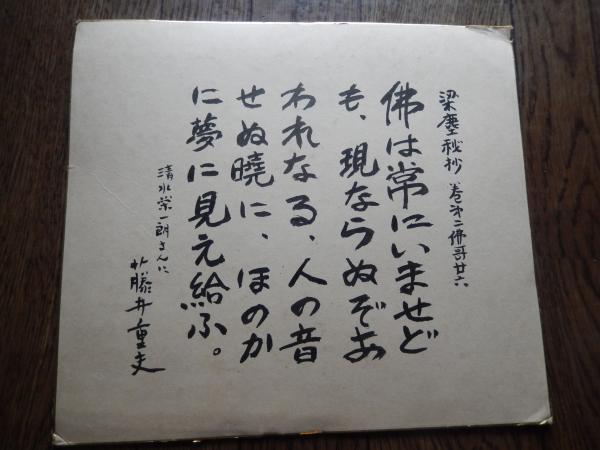 梁塵秘抄 巻第二佛哥廿六
佛は常にいませど
も、現ならぬぞあ
われなる、人の音
せぬ曉に、ほのか
に夢に見え給ふ。
清水栄一朗さんに
藤井重夫